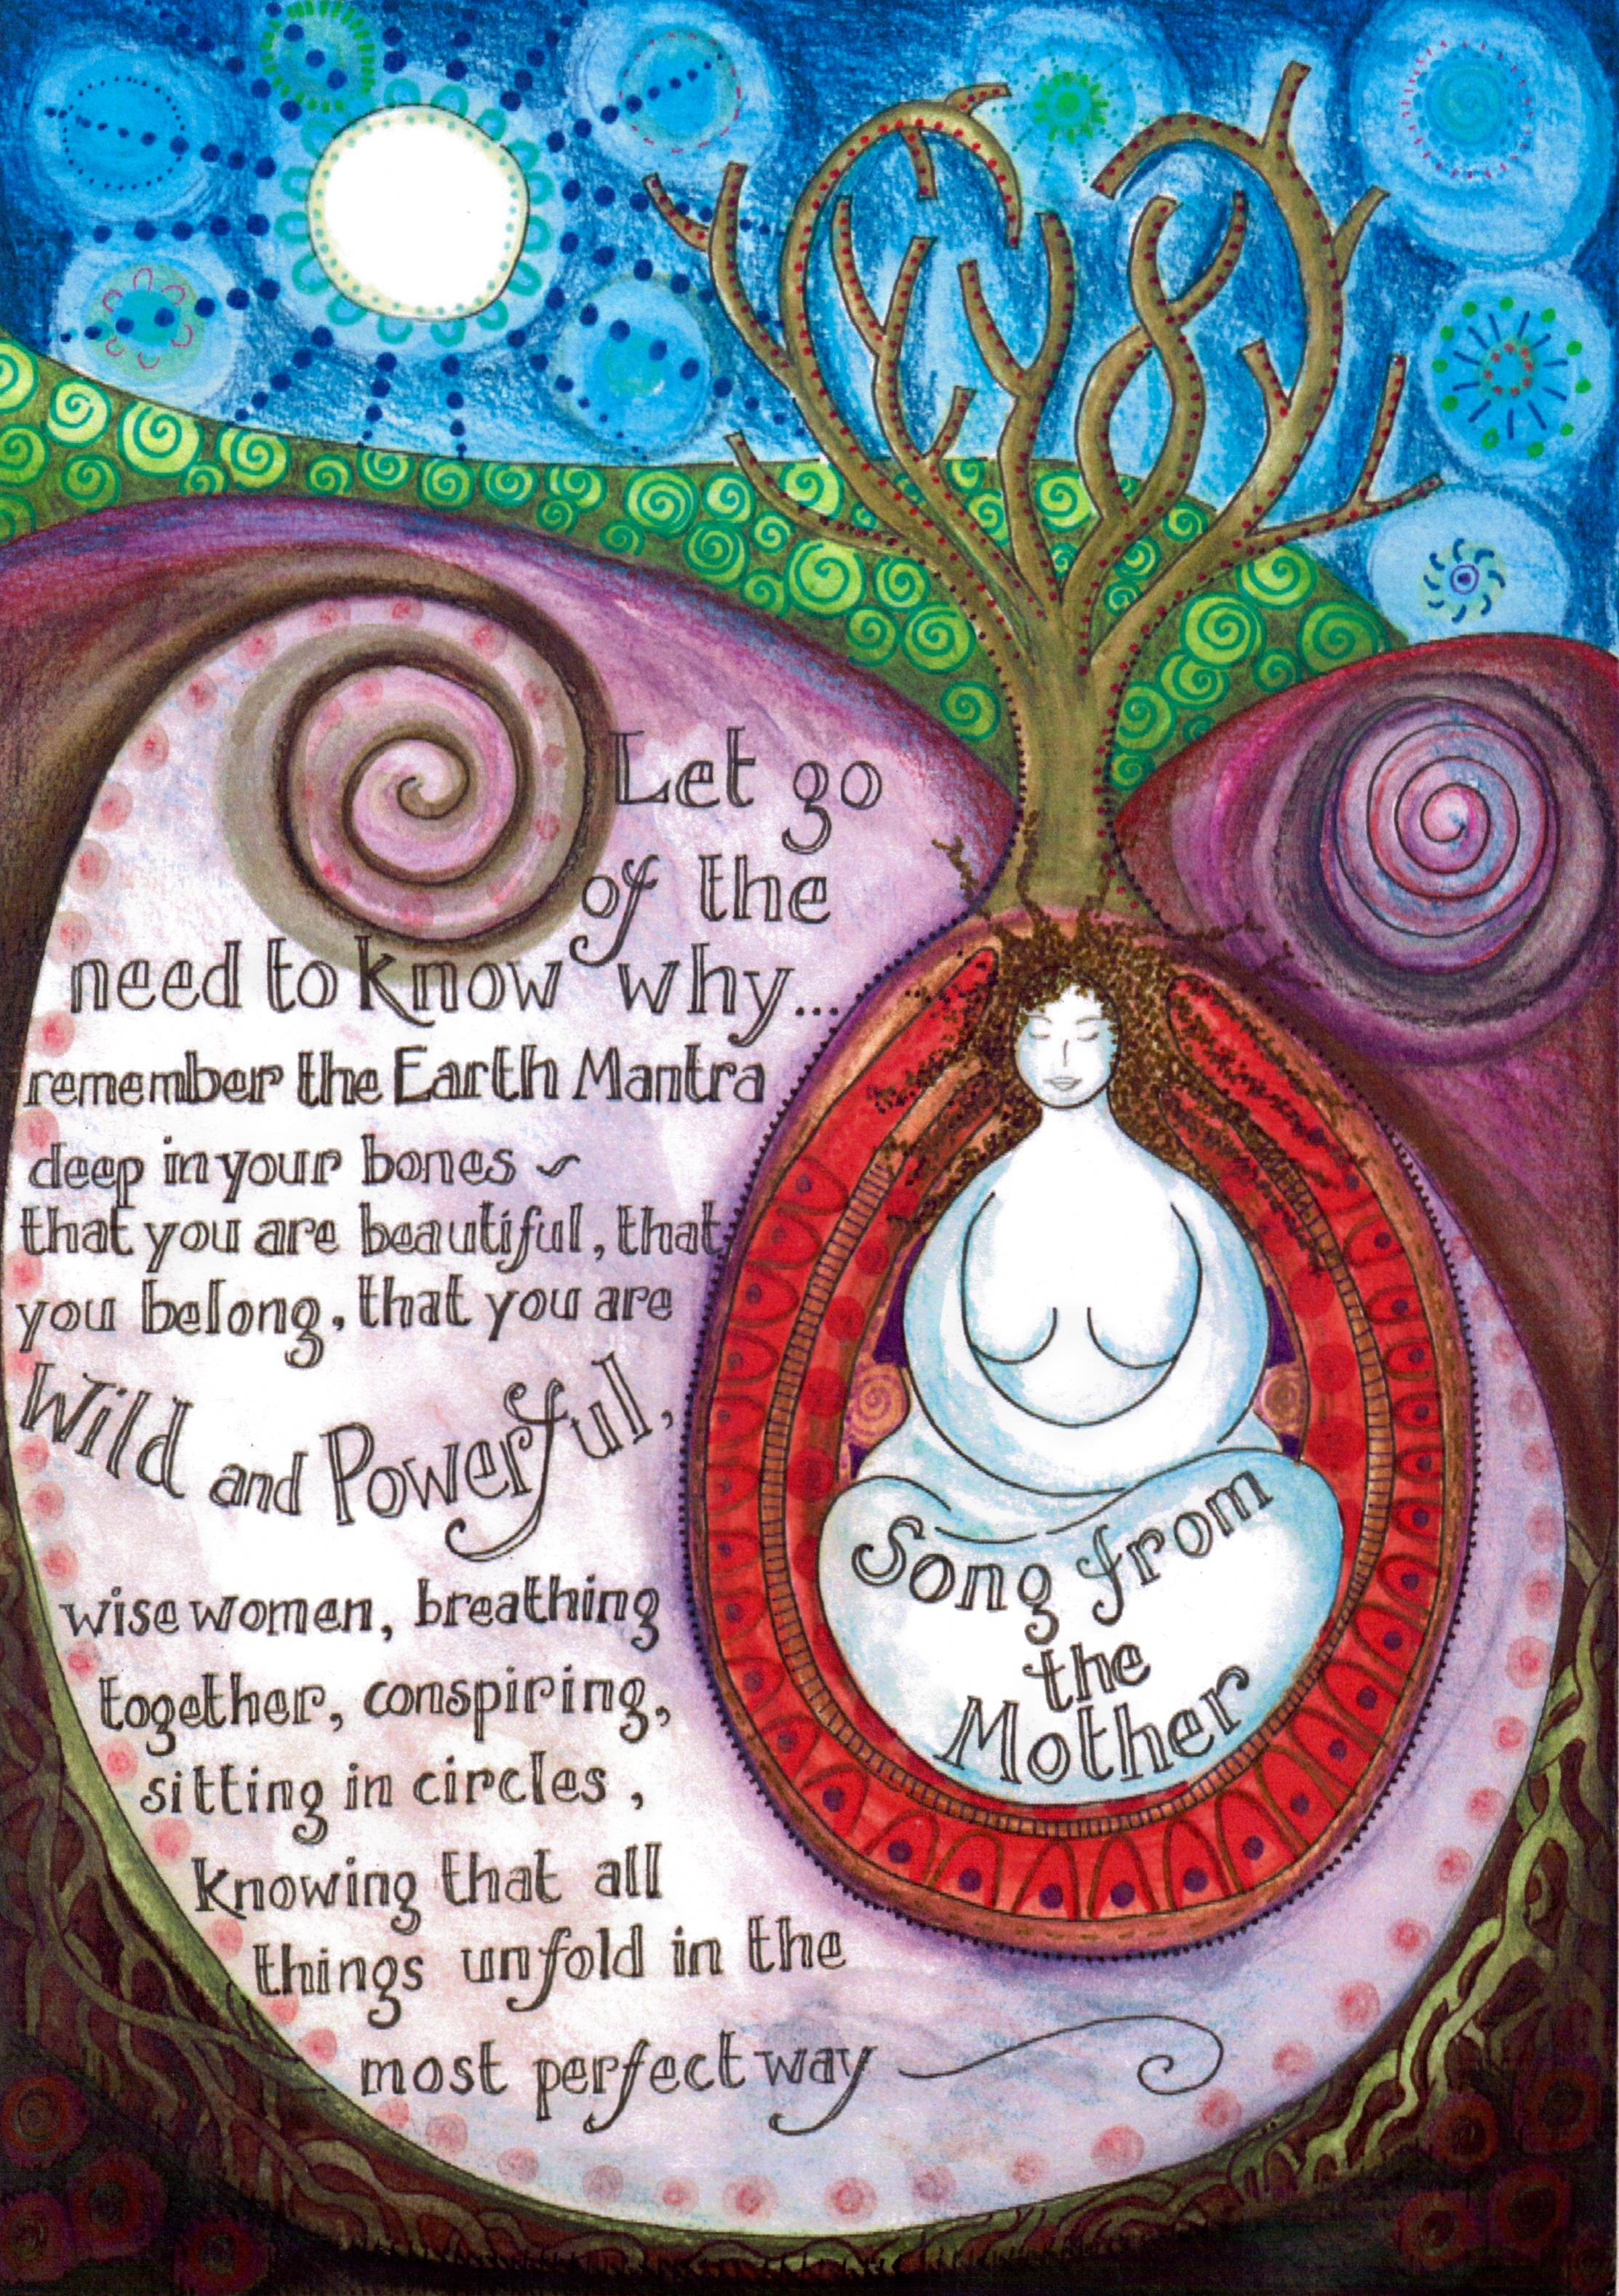 Let go
of the
need to know why...
remember the Earth Mantra
deep in your bones ~
that you are beautiful, that
you belong, that you are
Wild and Powerful,
wise women, breathing
together, conspiring,
sitting in circles,
knowing that all
things unfold in the
most perfect way
Song from
the
Mother